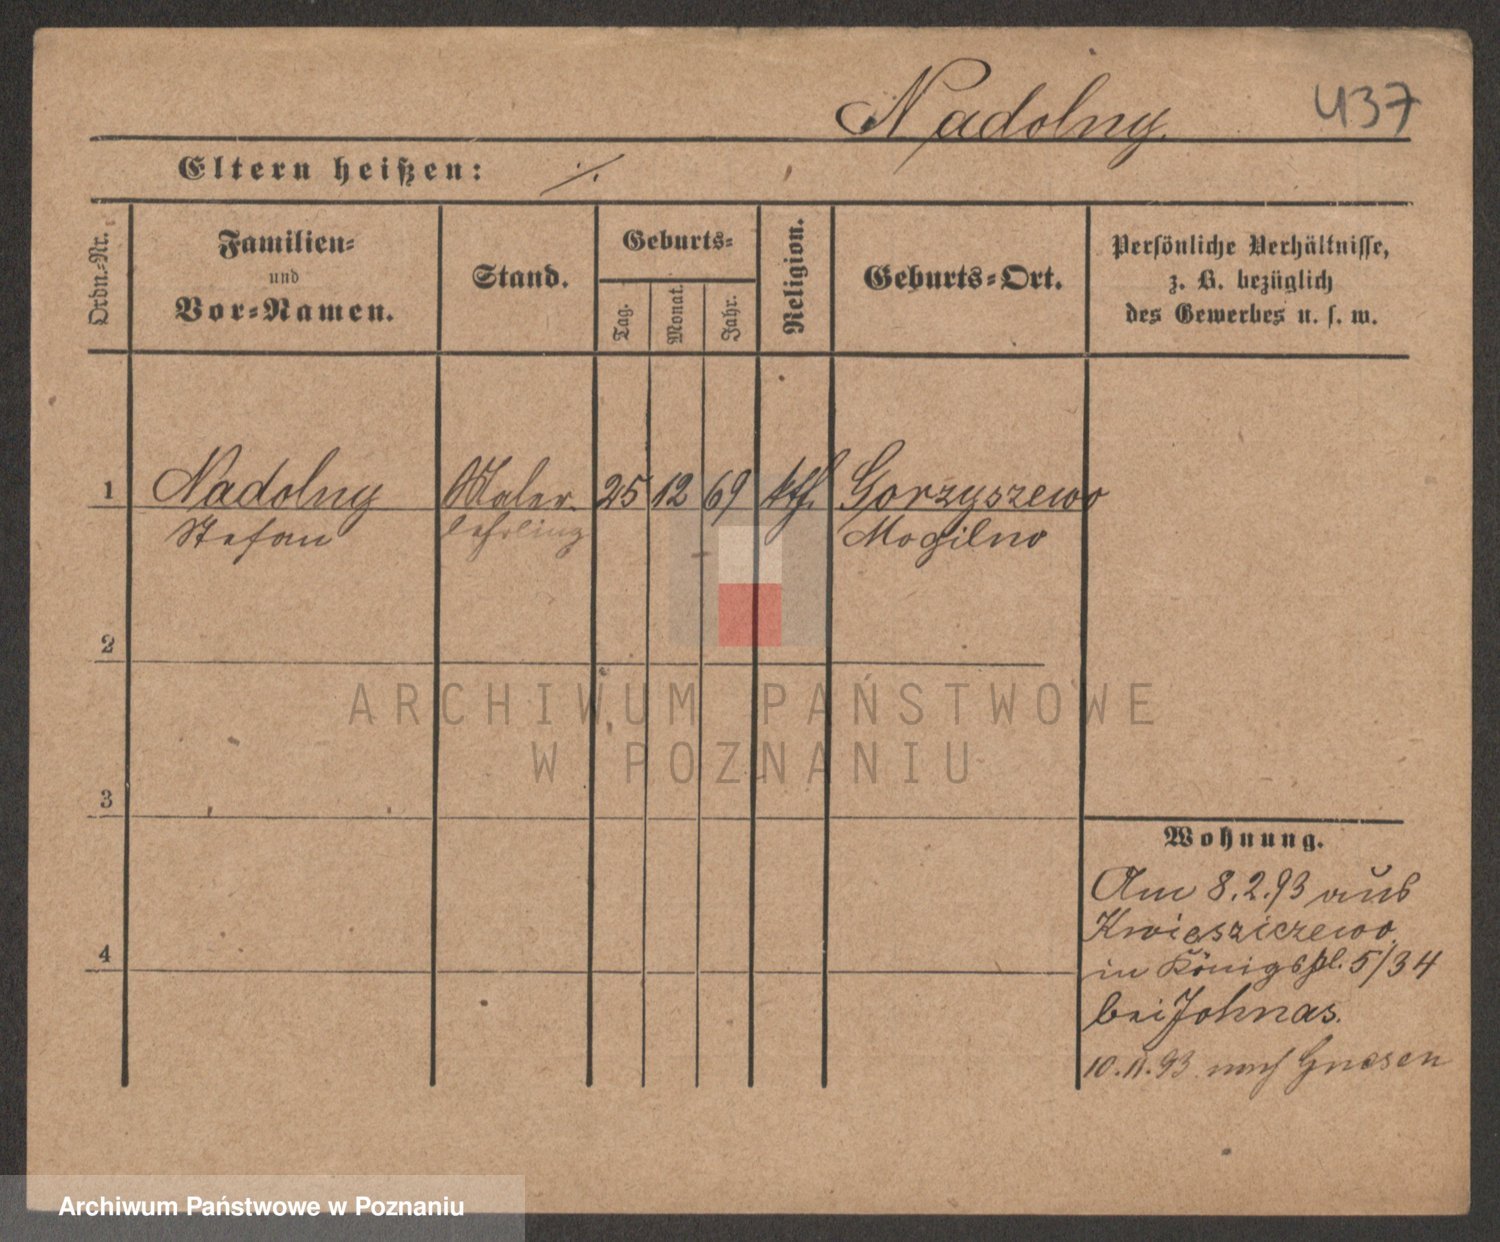 Nadolny
437
Eltern heißen: ./.
Ordn.-Nr.
Familien-
und
Vor-Namen.
Stand.
Geburts-
Tag.
Monat.
Jahr.
Religion.
Geburts-Ort.
Persönliche Verhältnisse,
z. B. bezüglich
des Gewerbes u. s. w.
1 Nadolny Maler- 25 12 69 kth. Gorzyszewo
Stefan lehrling Mogilno
2
3
4
Wohnung.
Am 8.2.93 aus
Kwiesziczewo
in Königspl. 5/34
bei Johnas.
10.11.93 nach Gnesen
ARCHIWUM PAŃSTWOWE
W POZNANIU
Archiwum Państwowe w Poznaniu